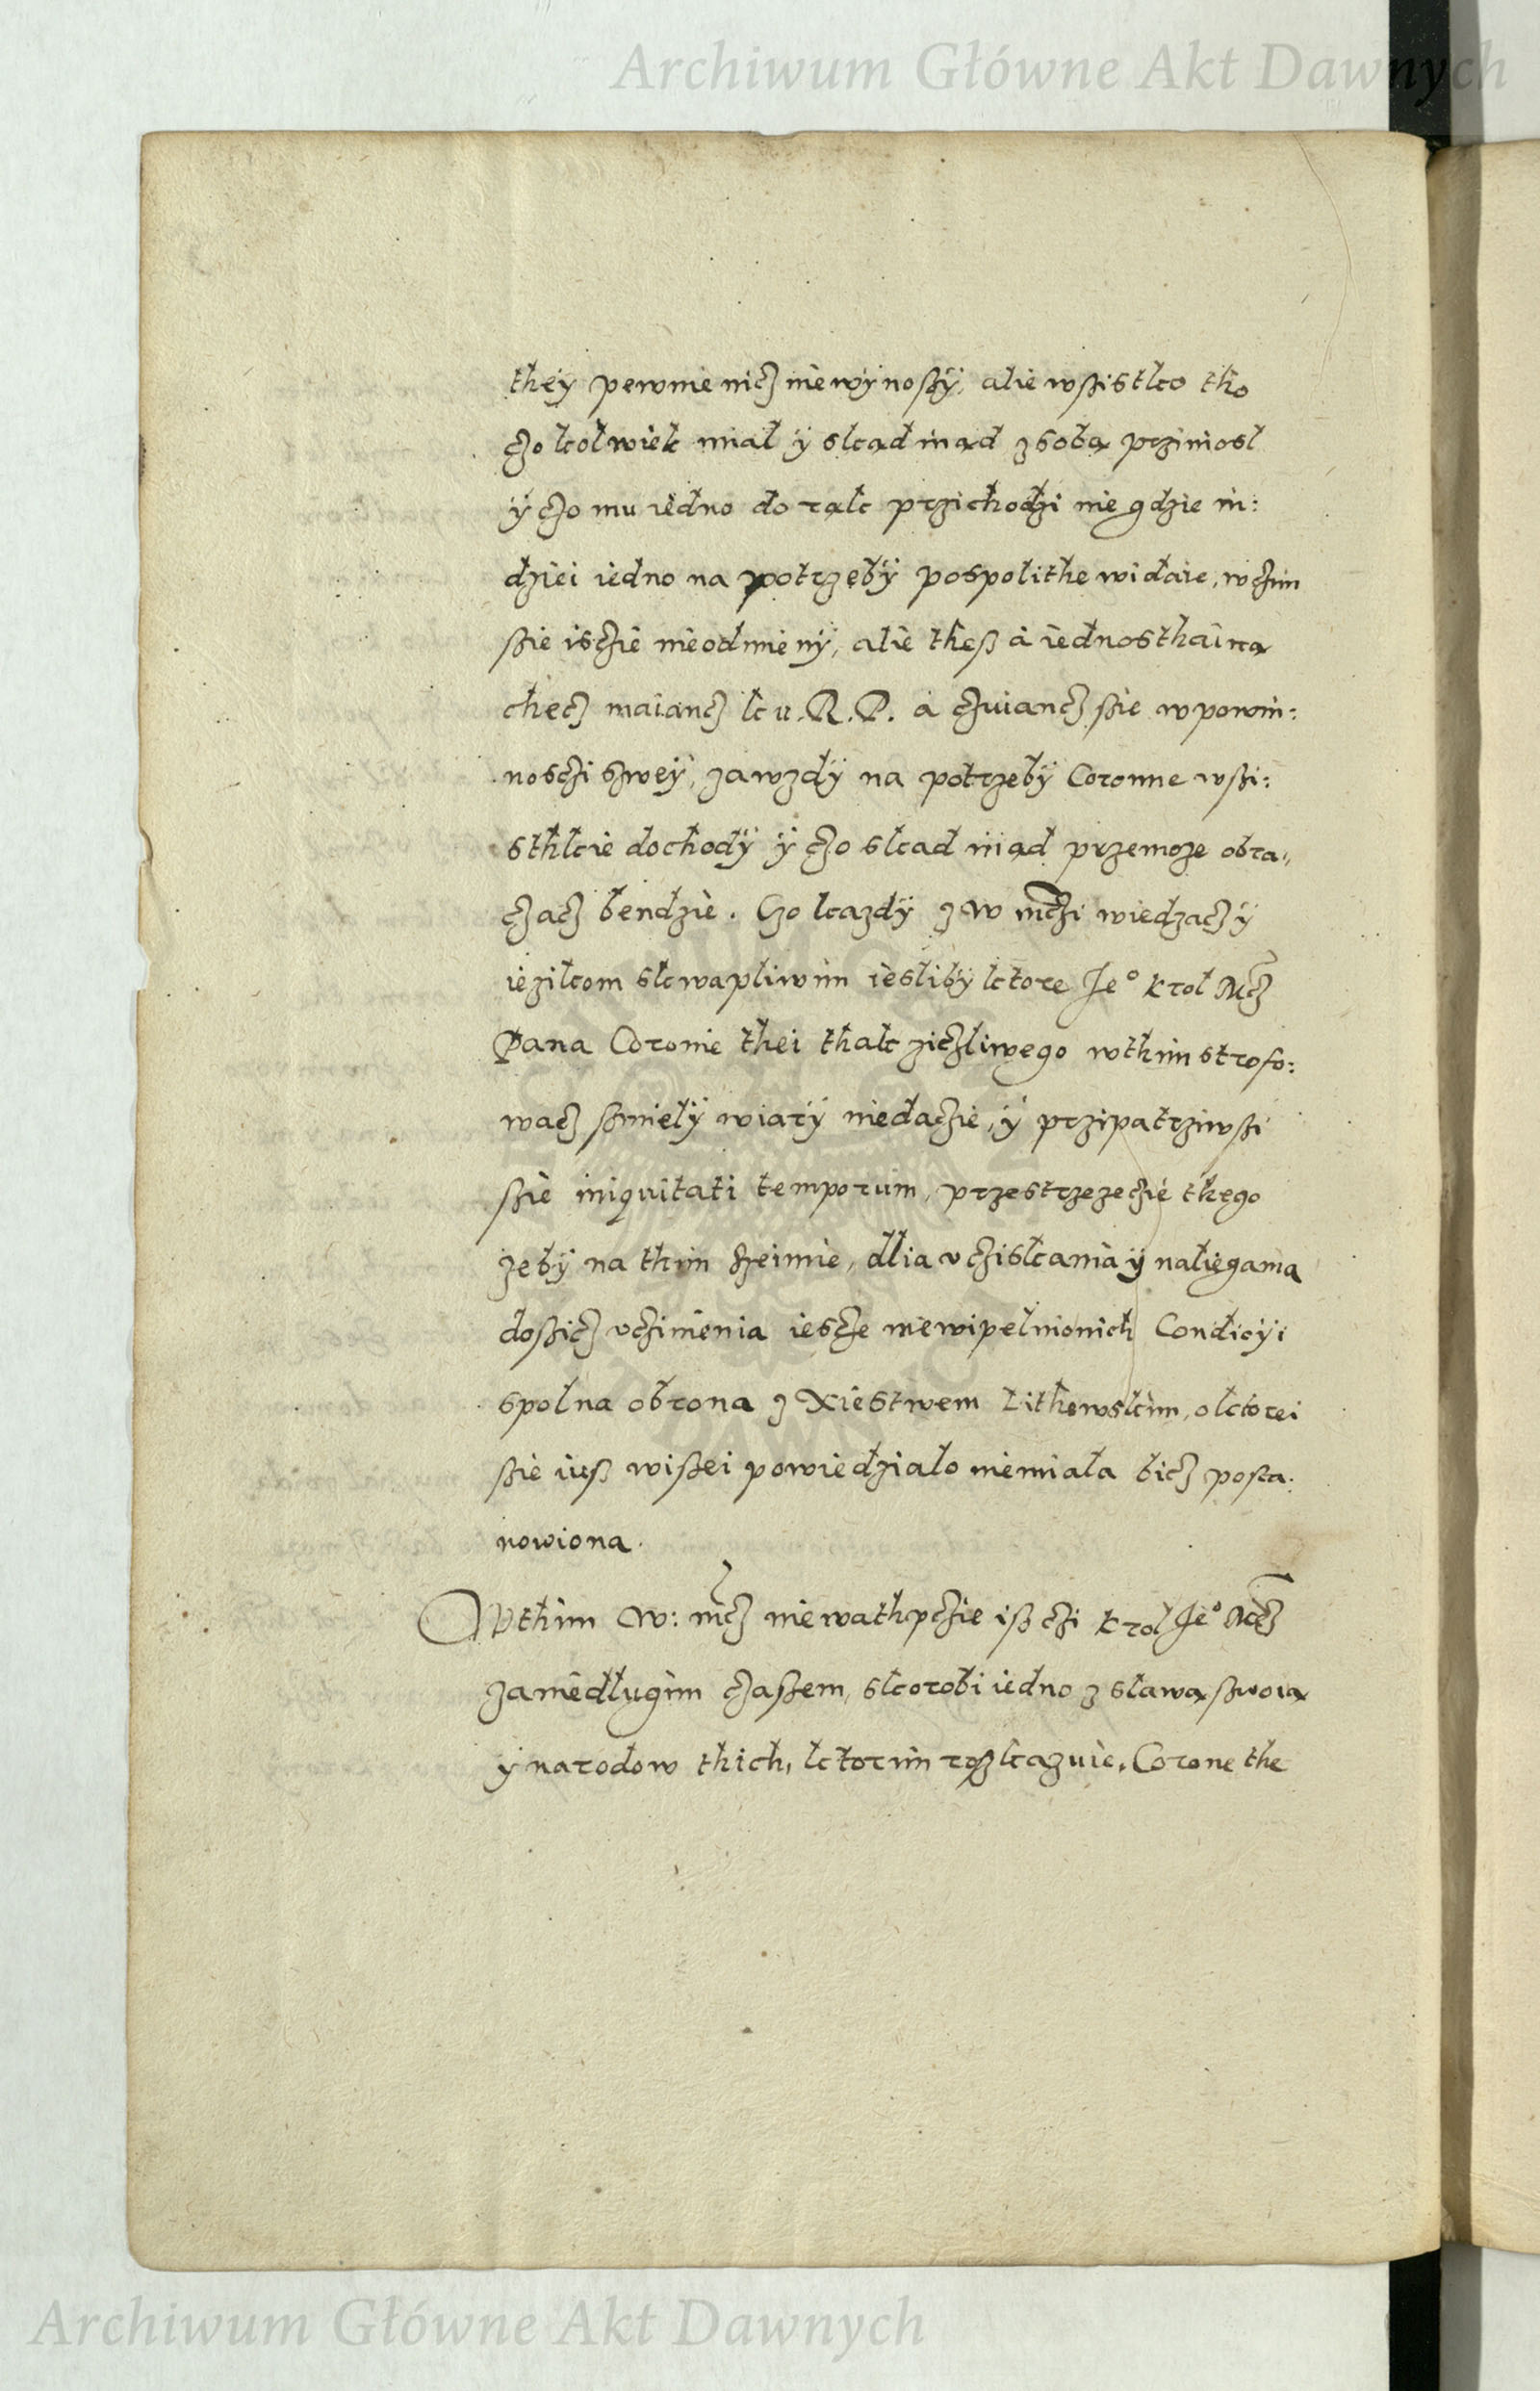 Archiwum Główne Akt Dawnych
they pewnie nicz niewÿnoszÿ, alie wszistko tho
czokolwiek miał ÿ skad inad z soba prziniosł
ÿ czo mu iedno do rak przichodzi nie gdzie in:
dziei iedno na potrzebÿ pospolithe widaie, wczim
szie isczie nieodmienÿ, alie thesz a iednosthaina
checz maiancz ku. R. P. a czuiancz szie w powin:
nosczi szweÿ, zawzdÿ na potrzebÿ Coronne wszi:
sthkie dochodÿ ÿ czo skad inad przemoze obra,,
czacz bendzie. Czo kazdÿ z W mczi wiedzacz ÿ
iezikom skwapliwim iesliby ktore Je° Krol Mcz
Pana Coronie thei thak zicziliwego wthim strofo:
wacz szmielÿ wiarÿ niedaczie, ÿ przipatrziwszi
szie iniquitati temporum, przestrzezeczie thego
zebÿ na thim szeimie, dlia vcziskania ÿ naliegania
doszicz vczinienia iescze niewipelnionich Condicÿi
spolna obrona z Xiestwem Lithewskim, oktorei
szie iusz wiszei powiedzialo niemiala bicz posta:
nowiona.
Wthim W: mcz niewathpczie isz czi Krol Je° Mcz
zaniedlugim czaszem, skorobi iedno z slawa szwoia
ÿ narodow thich, ktorim rozkazuie, Corone the
Archiwum Główne Akt Dawnych